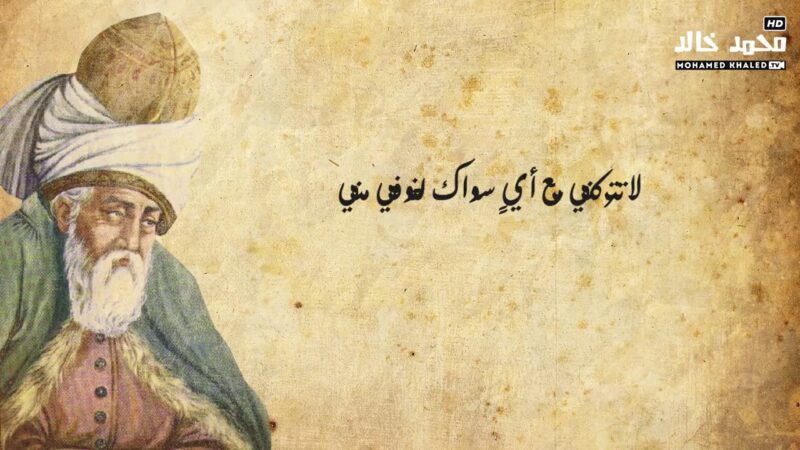 HD
محمد خالد
MOHAMED KHALED TV
لا تتركني مع أيٍ سواك لخوفي مني